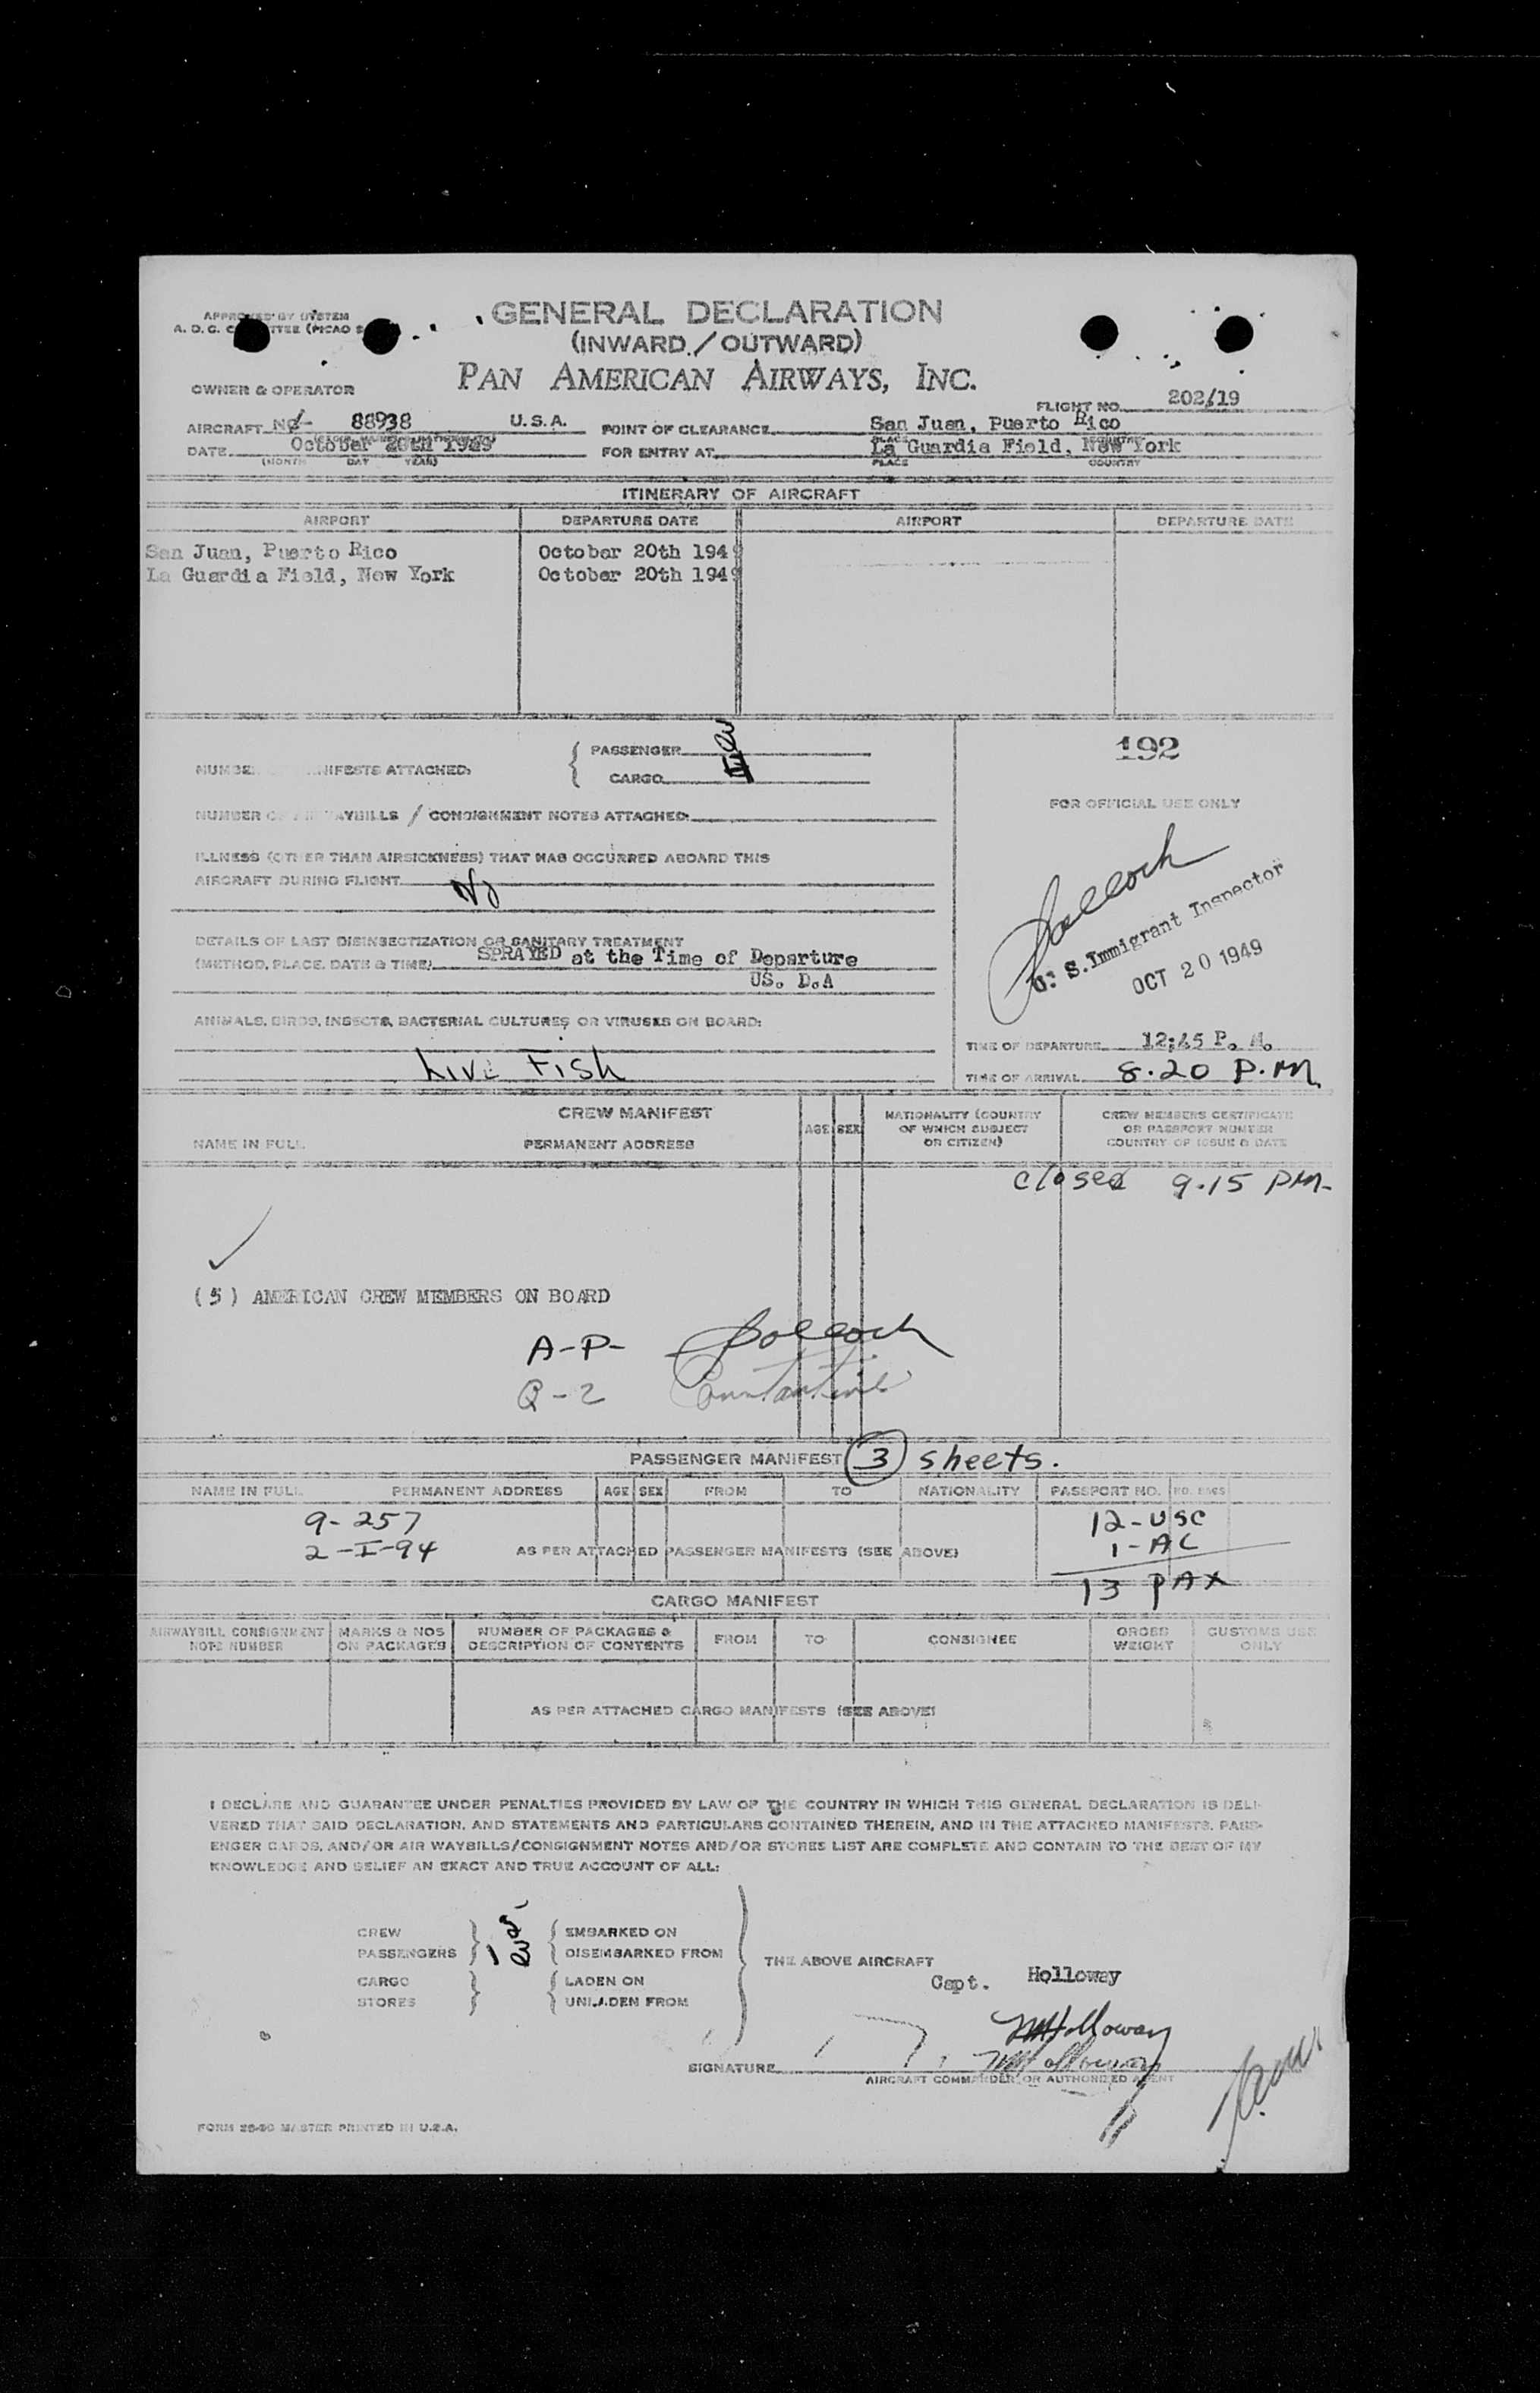 APPROVED BY SYSTEM
GENERAL DECLARATION
(INWARD / OUTWARD)
PAN AMERICAN AIRWAYS, INC.
OWNER & OPERATOR
FLIGHT NO. 202/19
AIRCRAFT NC- 88938 U.S.A. POINT OF CLEARANCE San Juan, Puerto Rico
DATE October 20th 1949 FOR ENTRY AT La Guardia Field, New York
(MONTH DAY YEAR) PLACE COUNTRY
ITINERARY OF AIRCRAFT
AIRPORT DEPARTURE DATE AIRPORT DEPARTURE DATE
San Juan, Puerto Rico October 20th 1949
La Guardia Field, New York October 20th 1949
192
PASSENGER
NUMBER MANIFESTS ATTACHED:
CARGO
FOR OFFICIAL USE ONLY
NUMBER OF AIR WAYBILLS / CONSIGNMENT NOTES ATTACHED:
ILLNESS (OTHER THAN AIRSICKNESS) THAT HAS OCCURRED ABOARD THIS
AIRCRAFT DURING FLIGHT No
Pollock
U. S. Immigrant Inspector
OCT 20 1949
DETAILS OF LAST DISINSECTIZATION OR SANITARY TREATMENT
(METHOD, PLACE, DATE & TIME) SPRAYED at the Time of Departure
US. D.A
ANIMALS, BIRDS, INSECTS, BACTERIAL CULTURES OR VIRUSES ON BOARD:
Live Fish
TIME OF DEPARTURE 12:45 P. M.
TIME OF ARRIVAL 8.20 P.M.
CREW MANIFEST
NAME IN FULL PERMANENT ADDRESS AGE SEX NATIONALITY (COUNTRY OF WHICH SUBJECT OR CITIZEN) CREW MEMBERS CERTIFICATE OR PASSPORT NUMBER COUNTRY OF ISSUE & DATE
closed 9.15 PM-
(5) AMERICAN CREW MEMBERS ON BOARD
A-P- Pollock
Q-2 Constantine
PASSENGER MANIFEST 3 sheets.
NAME IN FULL PERMANENT ADDRESS AGE SEX FROM TO NATIONALITY PASSPORT NO. NO. BAGS
9-257 12-USC
2-I-94 AS PER ATTACHED PASSENGER MANIFESTS (SEE ABOVE) 1-AC
13 PAX
CARGO MANIFEST
AIRWAYBILL CONSIGNMENT NOTE NUMBER MARKS & NOS ON PACKAGES NUMBER OF PACKAGES & DESCRIPTION OF CONTENTS FROM TO CONSIGNEE GROSS WEIGHT CUSTOMS USE ONLY
AS PER ATTACHED CARGO MANIFESTS (SEE ABOVE)
I DECLARE AND GUARANTEE UNDER PENALTIES PROVIDED BY LAW OF THE COUNTRY IN WHICH THIS GENERAL DECLARATION IS DELI-
VERED THAT SAID DECLARATION, AND STATEMENTS AND PARTICULARS CONTAINED THEREIN, AND IN THE ATTACHED MANIFESTS, PASS-
ENGER CARDS, AND/OR AIR WAYBILLS/CONSIGNMENT NOTES AND/OR STORES LIST ARE COMPLETE AND CONTAIN TO THE BEST OF MY
KNOWLEDGE AND BELIEF AN EXACT AND TRUE ACCOUNT OF ALL:
CREW EMBARKED ON
PASSENGERS DISEMBARKED FROM
THE ABOVE AIRCRAFT
CARGO LADEN ON
STORES UNLADEN FROM
Capt. Holloway
Holloway
Holloway
SIGNATURE
AIRCRAFT COMMANDER OR AUTHORIZED AGENT
FORM 25-90 MASTER PRINTED IN U.S.A.